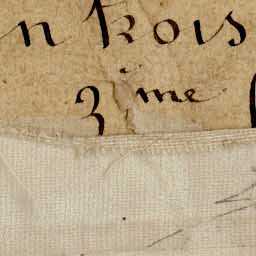 n trois
3me